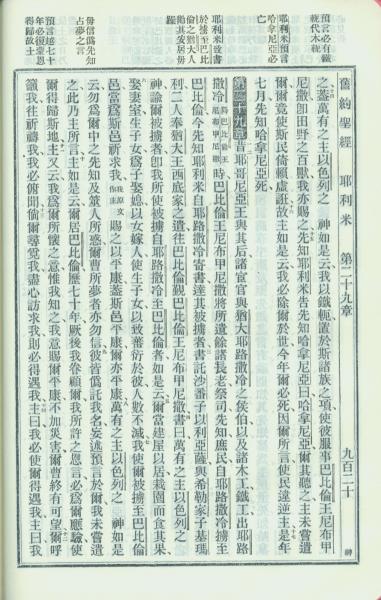 預言必有鐵
軛代木軛
耶利米預言
哈拿尼亞必
亡
耶利米致書
於擄至巴比
倫之猶大人
勸其安居毋
躁
毋信僞先知
占夢之言
預言越七十
年必復蒙恩
得歸故土
舊約聖經 耶利米 第二十九章 九百二十
之蓋萬有之主以色列之 神如是云我以鐵軛置於斯諸族之項使彼服事巴比倫王尼布甲
尼撒卽田野之百獸我亦賜之先知耶利米吿先知哈拿尼亞曰哈拿尼亞爾其聽之主未嘗遣
爾爾竟使斯民倚賴虛誑故主如是云我必除爾於世今年爾必死因爾所言使民違逆主是年
七月先知哈拿尼亞死
第二十九章 昔耶哥尼亞王與其后諸宦官與猶大耶路撒冷之侯伯以及諸木工鐵工出耶路
撒冷 時巴比倫王尼布甲尼撒將所遺餘諸長老祭司先知庶民自耶路撒冷擄至
巴比倫今先知耶利米自耶路撒冷寄書達其被擄者書託沙番子以利亞薩與希勒家子基瑪
利二人奉猶大王西底家之遣往巴比倫覲巴比倫王尼布甲尼撒書曰萬有之主以色列之
神諭爾被擄者卽我所使被擄自耶路撒冷至巴比倫者如是云爾當建屋以居栽園而食其果
娶妻室生子女爲子娶媳以女嫁人使生子女以致蕃衍於彼人數不減我使爾被擄至巴比倫
邑當爲斯邑祈求我 賜之以平康蓋斯邑平康爾亦平康萬有之主以色列之 神如是
云勿爲爾中之先知及筮人所惑爾曹所夢者亦勿信彼皆僞託我名妄述預言於爾我未嘗遣
之此乃主所言主如是云爾居巴比倫歷七十年厥後我眷顧爾我所許之恩言必爲爾應驗使
爾得歸斯地主又云我爲爾所懷之意惟我知之我意賜爾平康不加災害爾曹終有可望爾呼
籲我往祈禱我我必俯聞倘爾尋覓我盡心訪求我則必得遇我主曰我必使爾得遇我主曰我